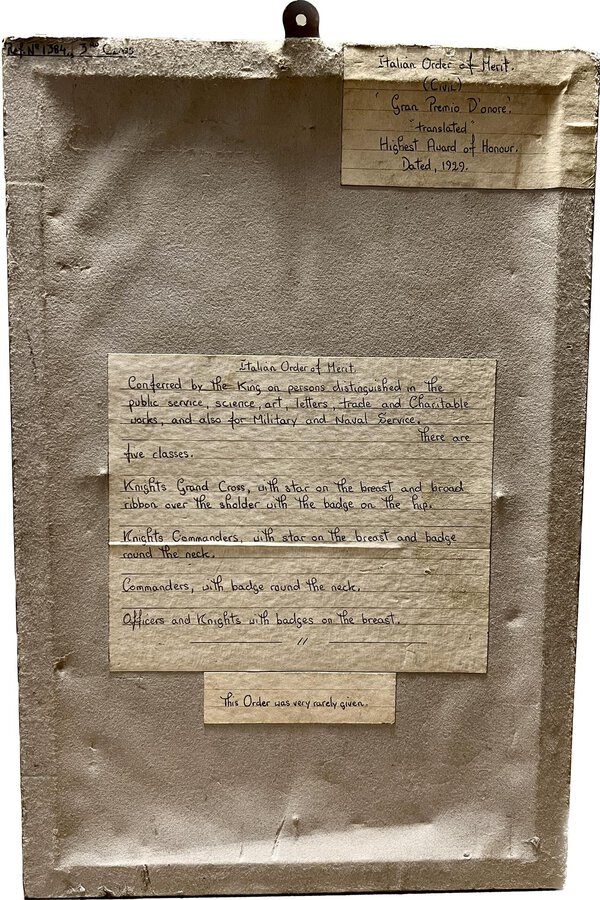 Ref. Nº 1384, 3rd Class
Italian Order of Merit.
(Civil)
"Gran Premio D'onore".
"translated"
Highest Award of Honour.
Dated, 1929.
Italian Order of Merit
Conferred by the King on persons distinguished in the
public service, science, art, letters, trade and Charitable
works, and also for Military and Naval Service.
There are
five classes.
Knights Grand Cross, with star on the breast and broad
ribbon over the sholder with the badge on the hip.
Knights Commanders, with star on the breast and badge
round the neck.
Commanders, with badge round the neck.
Officers and Knights with badges on the breast.
This Order was very rarely given.